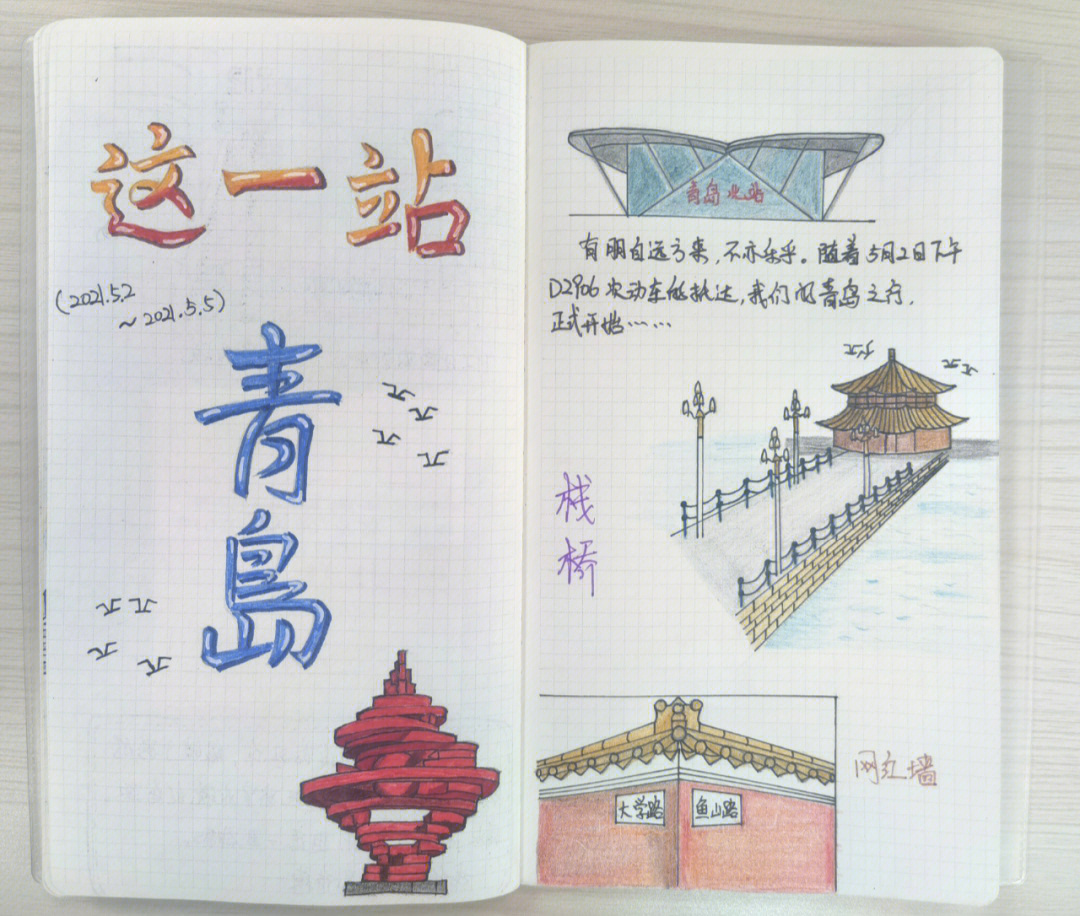 这一站
(2021.5.2
~2021.5.5)
青
島
青岛北站
有朋自远方来,不亦乐乎。随着5月2日下午
D2906次动车的抵达,我们的青岛之行,
正式开始……
栈
桥
大学路
鱼山路
网红墙